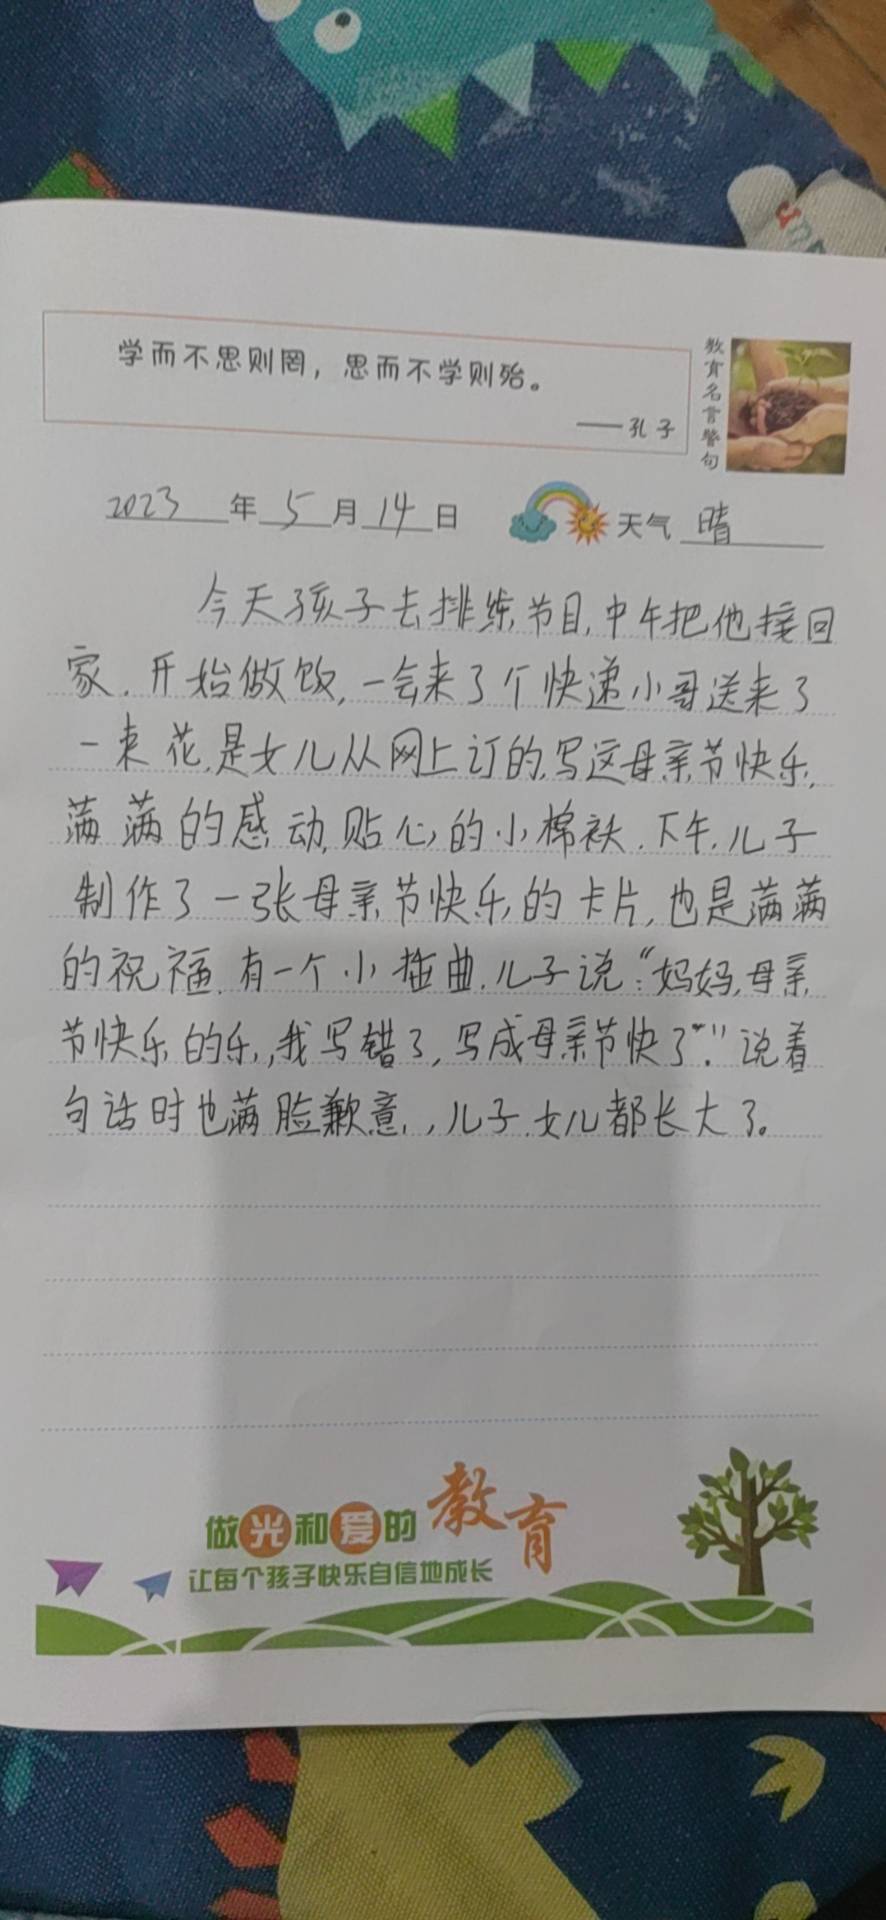 学而不思则罔，思而不学则殆。
——孔子
教育名言警句
2023年5月14日 天气 晴
今天孩子去排练节目,中午把他接回
家.开始做饭,一会来了个快递小哥送来了
一束花,是女儿从网上订的,写这母亲节快乐,
满满的感动,贴心的小棉袄.下午,儿子
制作了一张母亲节快乐的卡片,也是满满
的祝福.有一个小插曲.儿子说:“妈妈,母亲
节快乐的乐,我写错了,写成母亲节快了”.”说着
句话时也满脸歉意,,儿子.女儿都长大了。
做光和爱的教育
让每个孩子快乐自信地成长